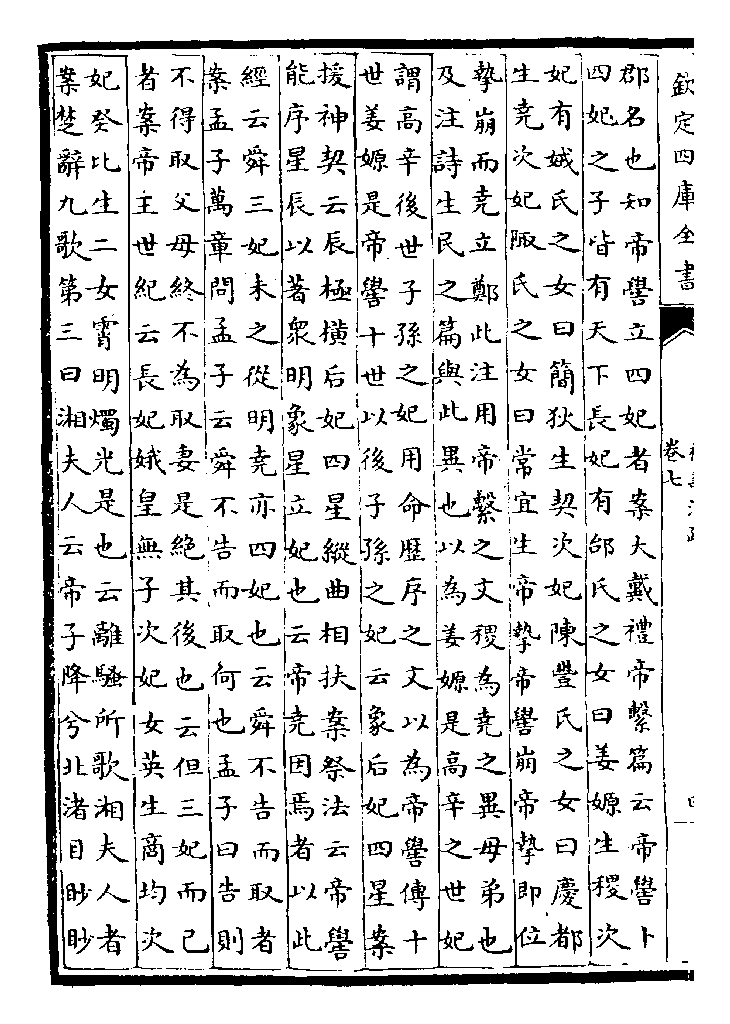 欽定四庫全書
卷七
郡名也知帝嚳立四妃者案大戴禮帝繫篇云帝嚳卜
四妃之子皆有天下長妃有邰氏之女曰姜嫄生稷次
妃有娀氏之女曰簡狄生契次妃陳豐氏之女曰慶都
生堯次妃陬氏之女曰常宜生帝摯帝嚳崩帝摯即位
摯崩而堯立鄭此注用帝繫之文稷為堯之異母弟也
及注詩生民之篇與此異也以為姜嫄是高辛之世妃
謂高辛後世子孫之妃用命歷序之文以為帝嚳傳十
世姜嫄是帝嚳十世以後子孫之妃云象后妃四星案
援神契云辰極橫后妃四星縱曲相扶案祭法云帝嚳
能序星辰以著衆明象星立妃也云帝堯因焉者以此
經云舜三妃未之從明堯亦四妃也云舜不告而取者
案孟子萬章問孟子云舜不告而取何也孟子曰告則
不得取父母終不為取妻是絶其後也云但三妃而已
者案帝主世紀云長妃娥皇無子次妃女英生商均次
妃癸比生二女霄明燭光是也云離騷所歌湘夫人者
案楚辭九歌第三曰湘夫人云帝子降兮北渚目眇眇